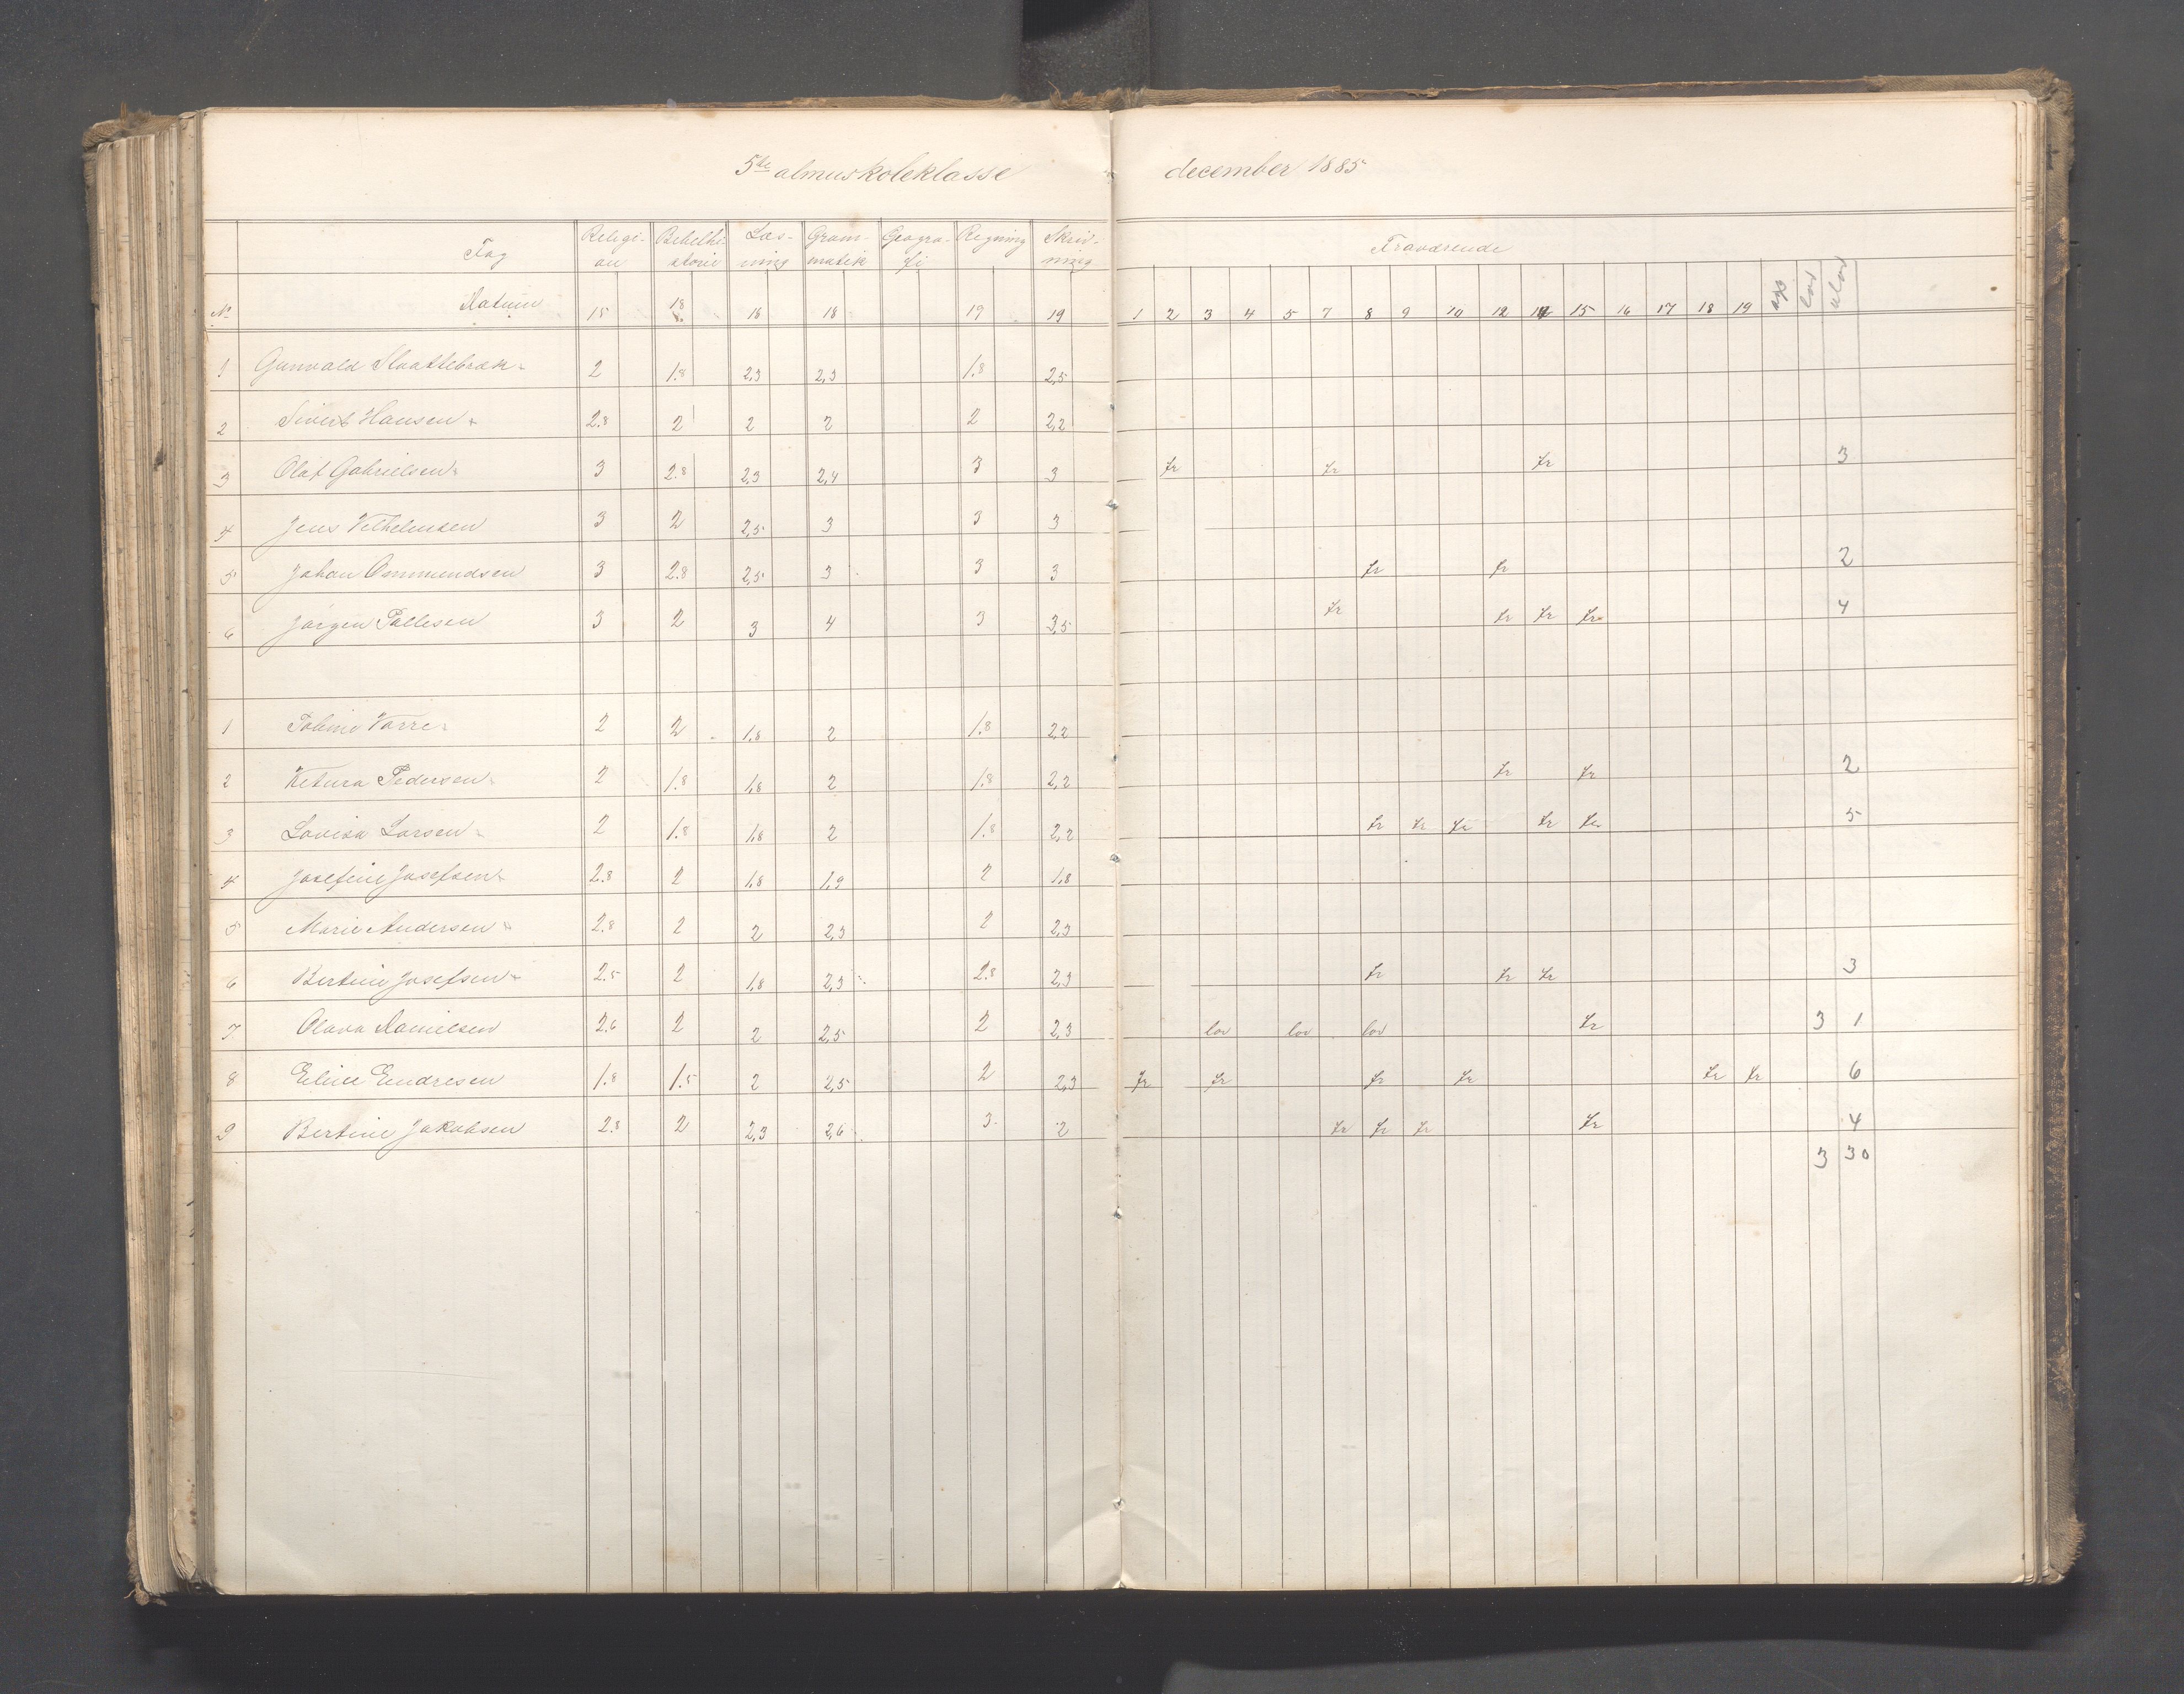 5te almuskoleklasse december 1885
Fag Religi-on Bibelhi-storie Læs-ning Gram-matik Geogra-fi Regning Skriv-ning Fraværende
No Datum 15 18 16 18 19 19 1 2 3 4 5 7 8 9 10 12 14 15 16 17 18 19 lov ulov
1 Gunvald 2 1.8 2,3 2,3 1.8 2,5
2 Sivert Hansen 2.8 2 2 2 2 2,2
3 Olaf Gabrielsen 3 2.8 2,3 2,4 3 3 fr fr fr 3
4 Jens Vilhelmsen 3 2 2,5 3 3 3
5 Johan Ommundsen 3 2.8 2,5 3 3 3 fr fr 2
6 Jørgen Pallesen 3 2 3 4 3 3,5 fr fr fr fr 4
1 Tobine Varre 2 2 1,8 2 1.8 2,2
2 Ketura Pedersen 2 1.8 1,8 2 1.8 2,2 fr fr 2
3 Lovisa Larsen 2 1.8 1,8 2 1.8 2,2 fr fr fr fr fr 5
4 Josefine Josefsen 2.8 2 1,8 1,9 2 1,8
5 Marie Andersen 2.8 2 2 2,3 2 2,3
6 Bertine Josefsen 2.5 2 1,8 2,3 2.8 2,3 fr fr fr 3
7 Olava Danielsen 2.6 2 2 2,5 2 2,3 lov lov lov fr 3 1
8 Eline Endresen 1.8 1.5 2 2,5 2 2,3 fr fr fr fr fr fr 6
9 Bertine Jakobsen 2.8 2 2,3 2,6 3. 2 fr fr fr fr 4
3 30